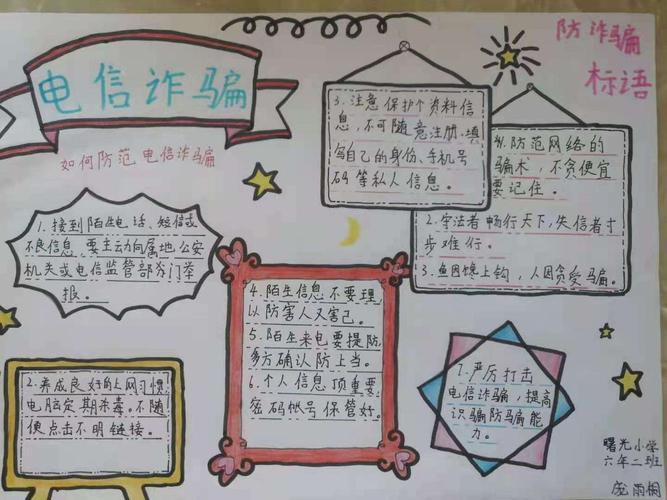 电信诈骗
如何防范电信诈骗
1.接到陌生电话、短信或
不良信息,要主动向属地公安
机关或电信监管部分门举
报。
2.养成良好的上网习惯,
电脑定期杀毒。不随
便点击不明链接。
3.注意保护个资料信
息,不可随意注册、填
写自己的身份、手机号
码等私人信息。
4.陌生信息不要理,
以防害人又害己。
5.陌生来电要提防,
多方确认防上当。
6.个人信息顶重要,
密码帐号保管好。
防诈骗
标语
防范网络的
骗术,不贪便宜
要记住。
2.守法者畅行天下,失信者寸
步难行。
3.鱼因馋上钩,人因贪受骗。
1.严厉打击
电信诈骗,提高
识骗防骗能
力。
曙光小学
六年二班
庞雨桐